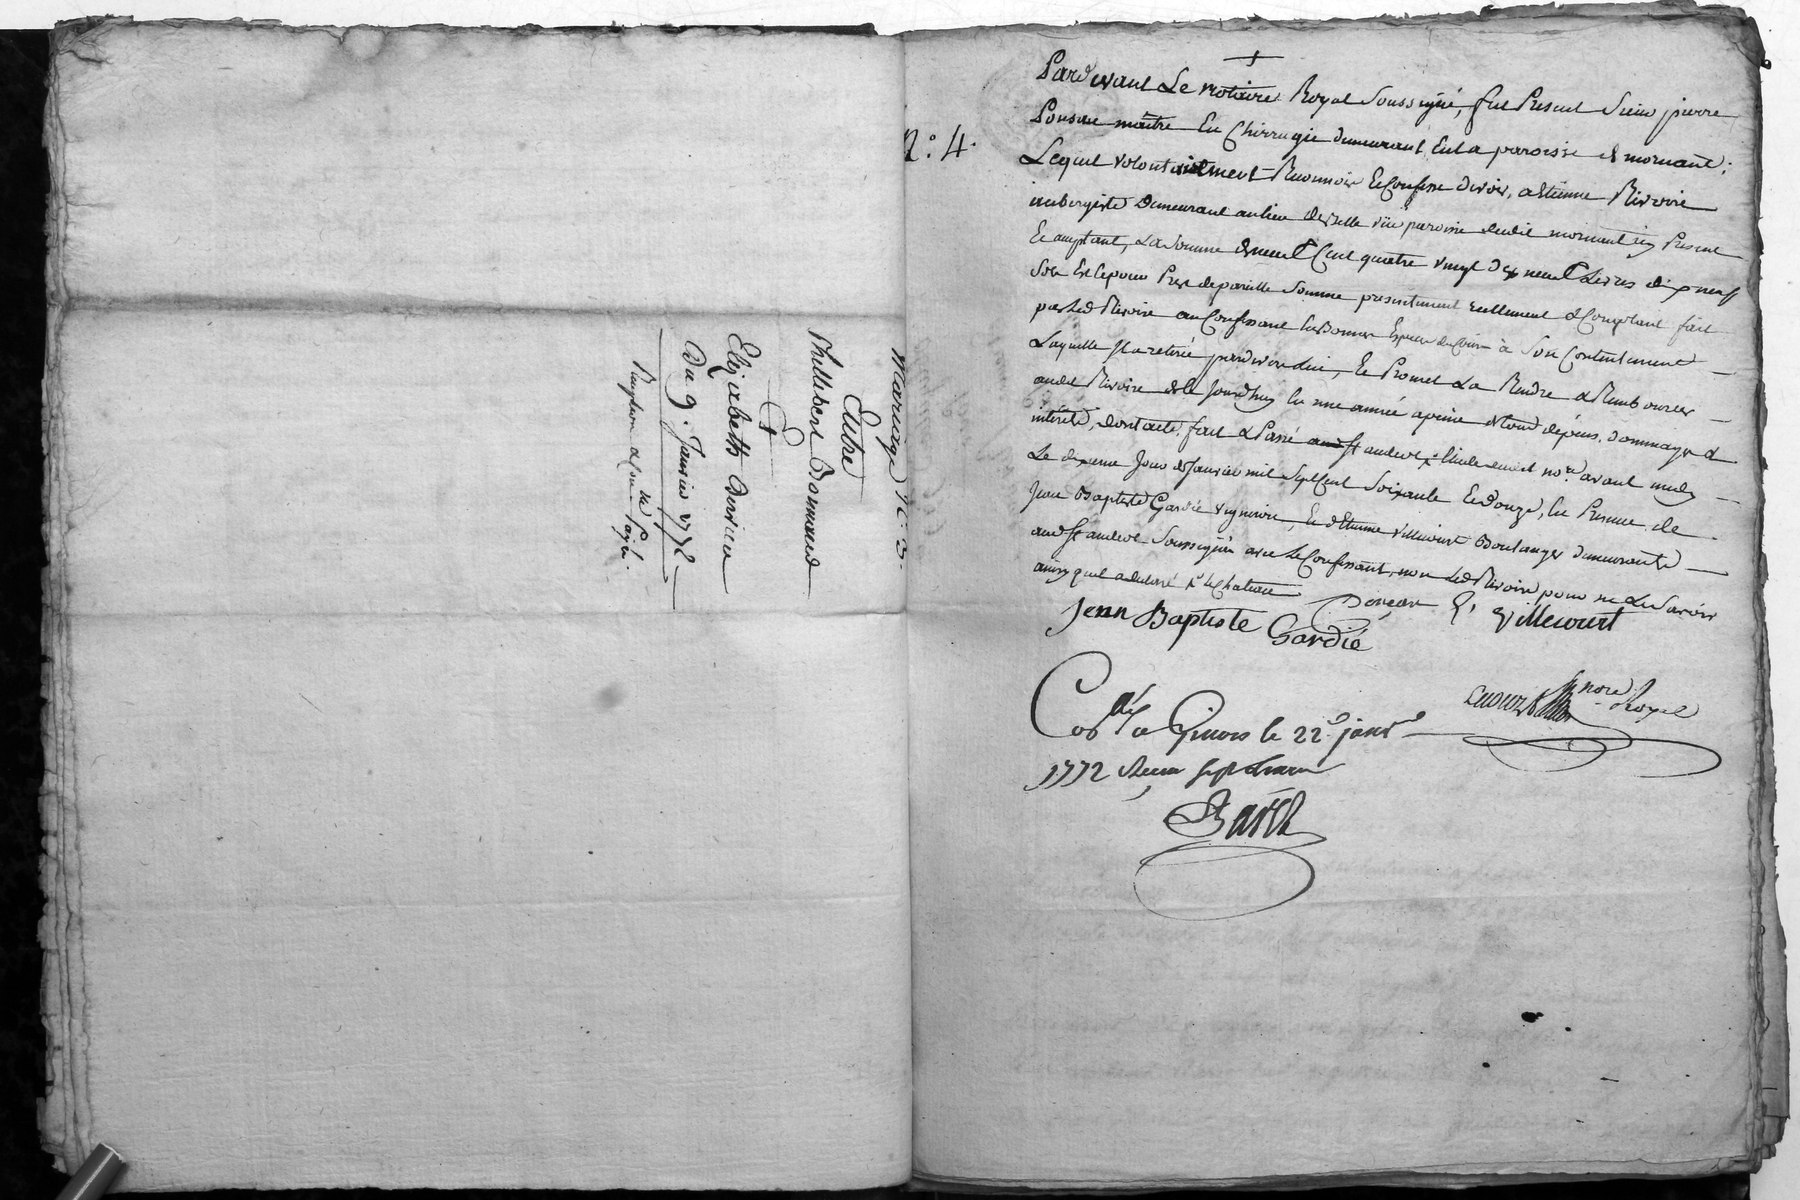 Mariage N.° 3.
Entre
Phillibert Bonnand
Et
Elizabeth
Du 9. Janvier 1772
n.° 4.
Pardevant Le Notaire Royal Soussigné, fut Present Sieur pierre
Ponson maitre En Chirurgie demeurant En La paroisse de mornant;
Lequel volontairement Reconnoit Et Confesse devoir, a Etienne Rivoire
aubergiste Demeurant au lieu de belle vüe paroisse dudit mornant icy Present
Et acceptant, La Somme de neuf Cent quatre vingt dix neuf Livres dix neuf
Sols Et Ce pour Prest de pareille Somme presentement reellement & Comptant fait
par Led Rivoire au Confessant En Bonnes Especes du Cours à Son Contentement
Laquelle Il a retiré pardevers lui, Et Promet La Rendre & Rembourser
audit Rivoire de Ce Jourdhuy En une année apeine de tous dépens, dommages &
intérêts, dont acte, fait & Passé a St andeol Etude dudit no.re avant midy
Le dixieme Jour de Janvier mil Sept Cent Soixante Et Douze, En Presence de
Jean Baptiste Gardié vigneron, Et d'Etienne villecourt Boulanger demeurants
aud St andeol Soussignés avec Le Confessant, non Led Rivoire pour ne Le Savoir
ainsy quil a declaré le Chateau
Ponçon E. villecourt
Jean Baptiste Gardié
nore. Royal
Cos.lé a Givors le 22.e janv.r
1772 Recu sept Livres